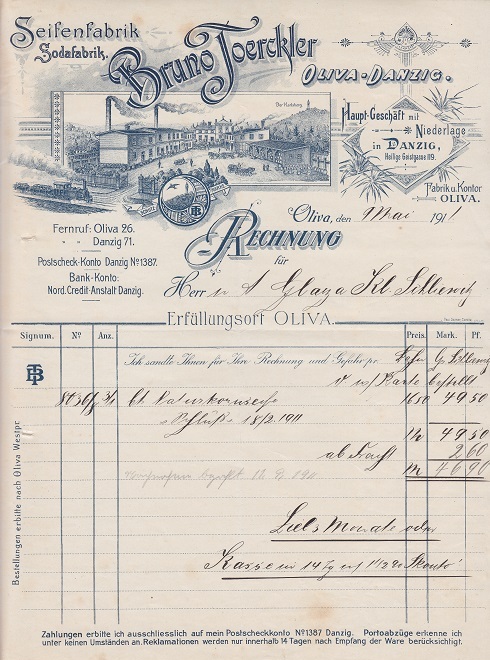 Seifenfabrik
Sodafabrik.
Bruno Toerckler
OLIVA-DANZIG.
Der Karlsberg
Haupt-Geschäft mit
Niederlage
in DANZIG,
Heilige Geistgasse 119.
Fabrik u. Kontor
OLIVA.
Fernruf: Oliva 26.
" " Danzig 71.
Postscheck-Konto Danzig № 1387.
Bank-Konto:
Nord. Credit-Anstalt Danzig.
Oliva, den Mai 1911
RECHNUNG
für
Herr
Erfüllungsort OLIVA.
Signum. № Anz. Preis. Mark. Pf.
Ich sandte Ihnen für Ihre Rechnung und Gefahr pr.
bestellt
TB
8030/ 3/1 Ct. Naturkornseife 16 50 49 50
18/2 1911
49 50
ab Fracht 2 60
M 46 90
Monate oder
14 Tg Skonto
Bestellungen erbitte nach Oliva Westpr.
Zahlungen erbitte ich ausschliesslich auf mein Postscheckkonto № 1387 Danzig. Portoabzüge erkenne ich
unter keinen Umständen an. Reklamationen werden nur innerhalb 14 Tagen nach Empfang der Ware berücksichtigt.